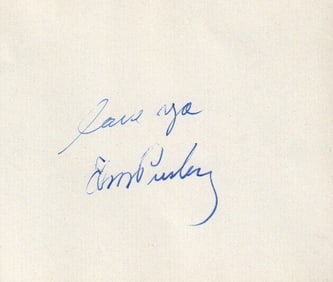 love ya
Elvis Presley